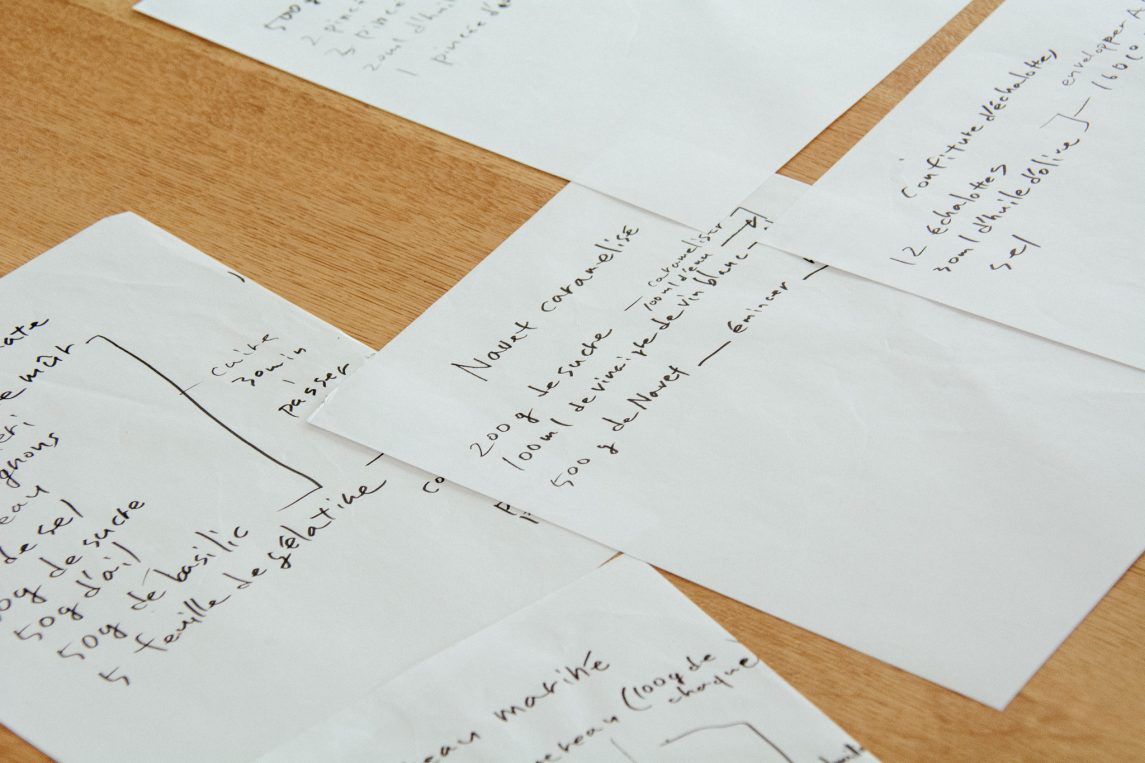 500g
2 pince
3 pince
20ml d'huil
1 pincée d
Confiture d'échalottes
12 échalottes
30ml d'huile d'olive
sel
envelopper A
Navet caramelisé
200g de sucre
caraméliser
100ml d'eau
100ml de vinaigre de vin blanc
500 g de Navet — émincer
mûr
gnons
eau
de sel
50g de sucre
50g d'ail
50g de basilic
5 feuille de gélatine
cuire
30min
passer
co
eau mariné
(100g de
chaque